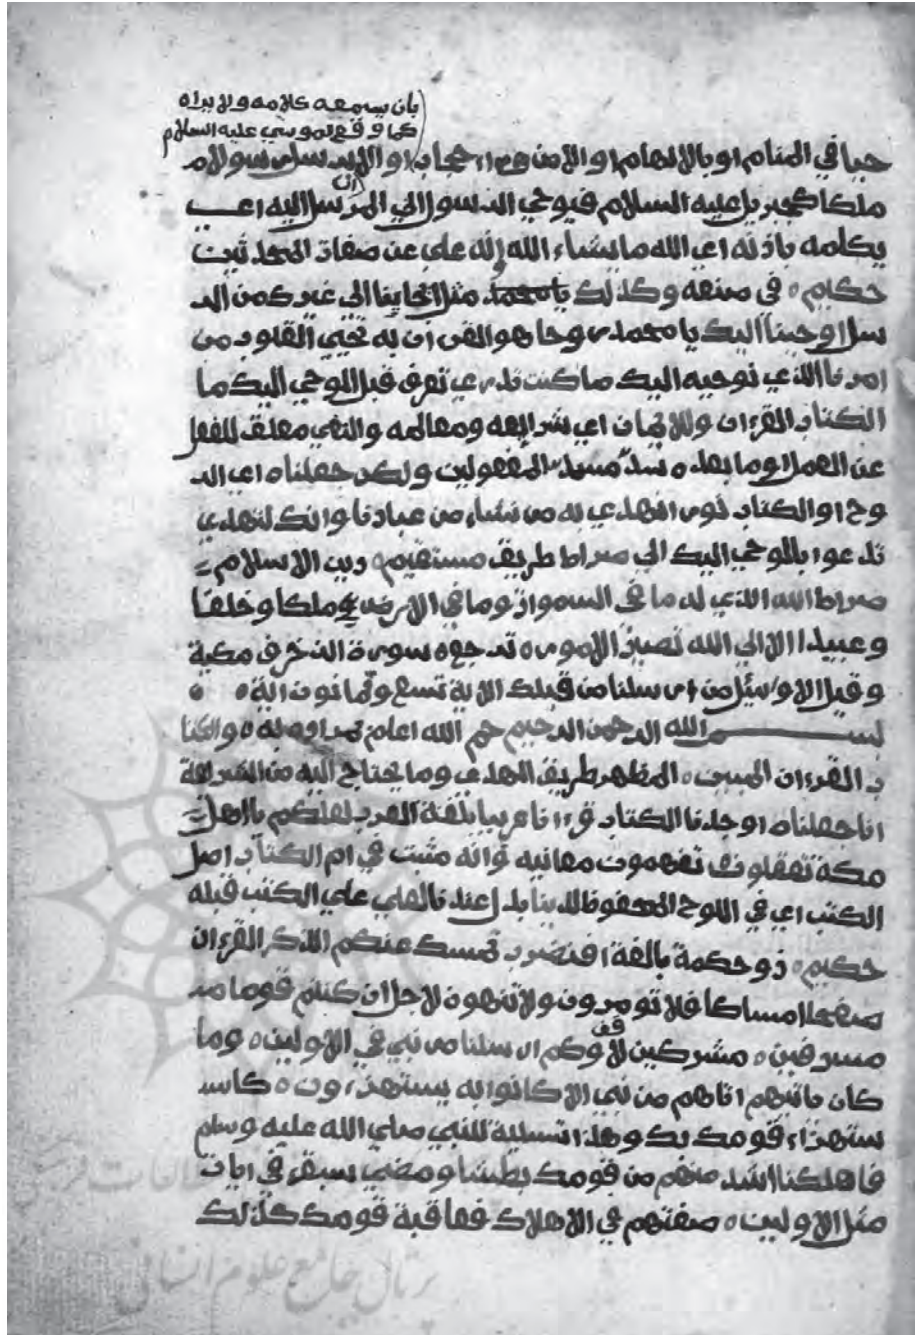 بان يسمعه كلامه ولا يراه
كما وقع لموسي عليه السلام
حيا في المنام او بالالهام او الا من وراء حجاب او الا يرسل رسولا
ملكا كجبريل عليه السلام فيوحي الرسول الي المرسل اليه اي
يكلمه باذنه اي الله ما يشاء الله إنه علي عن صفات المحدثين
حكيم في صنعه وكذلك يا محمد مثل ايحاينا الي غيرك من الر
سل اوحينا اليك يا محمد روحا هو القرءان به تحيي القلوب من
امرنا الذي نوحيه اليك ما كنت تدري تعرف قبل الوحي اليك ما
الكتاب القرءان ولا الايمان اي شرايعه ومعالمه والنفي معلق للفعل
عن العمل او ما بعده سد مسد المفعولين ولكن جعلناه اي الر
وح او الكتاب نورا نهدي به من نشاء من عبادنا وانك لتهدي
تدعوا بالوحي اليك الي صراط طريق مستقيم دين الاسلام
صراط الله الذي له ما في السموات وما في الارض ملكا وخلقا
وعبيدا الا الي الله تصير الامور ترجع سورة الزخرف مكية
وقيل الا واسئل من ارسلنا من قبلك الاية تسع وثمانون اية
بسم الله الرحمن الرحيم حم الله اعلم بمراده به والكتا
ب القرءان المبين المظهر طريق الهدي وما يحتاج اليه من الشريعة
انا جعلناه اوجدنا الكتاب قرءانا عربيا بلغة العرب لعلكم يا اهل
مكة تعقلون تفهمون معانيه وانه مثبت في ام الكتاب اصل
الكتب اي في اللوح المحفوظ لدينا بدل عندنا لعلي علي الكتب قبله
حكيم ذو حكمة بالغة افنضرب نمسك عنكم الذكر القرءان
صفحا امساكا فلا تومرون ولا تنهون لاجل ان كنتم قوما
مسرفين مشركين لا وكم ارسلنا من نبي في الاولين وما
كان ياتيهم اتاهم من نبي الا كانوا به يستهزءون كاس
ستهزاء قومك بك وهذا تسلية للنبي صلي الله عليه وسلم
فاهلكنا اشد منهم من قومك بطشا ومضي سبق في ايات
مثل الاولين صفتهم في الاهلاك فعاقبة قومك كذلك
پرتال جامع علوم انسانی